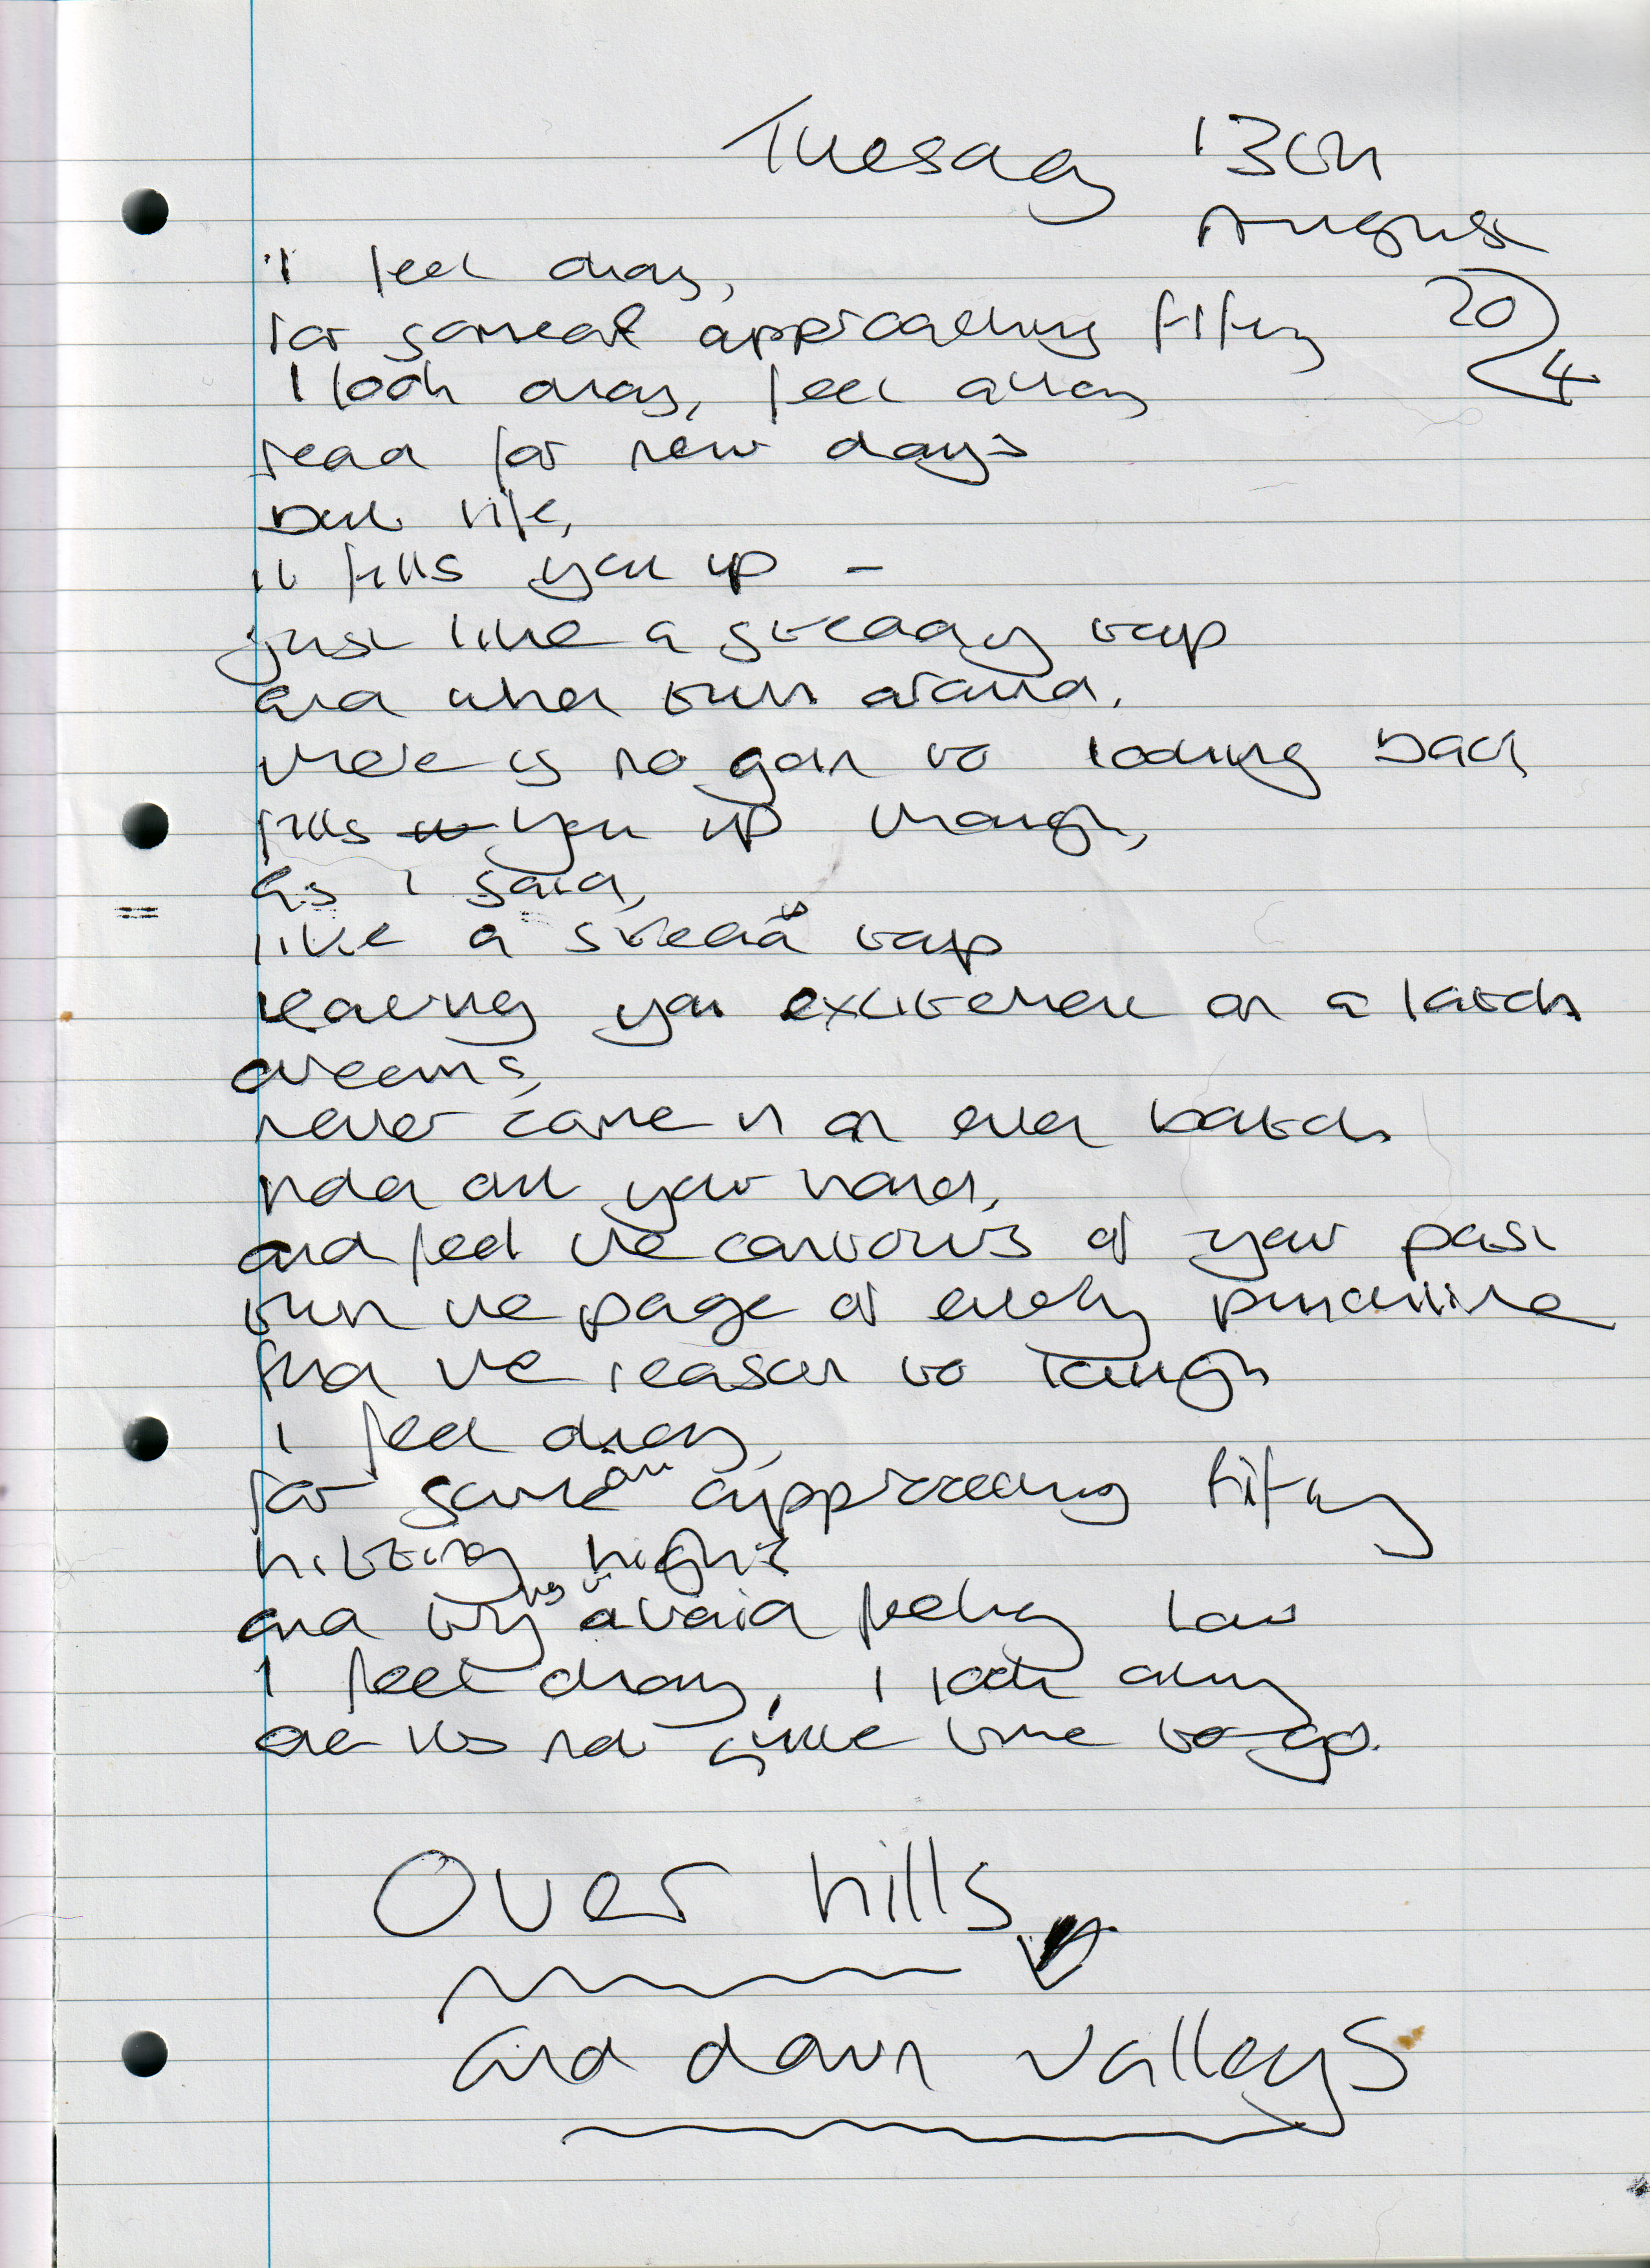 Tuesday 13th
August
2024
I feel okay,
for someone approaching fifty
I look okay, feel okay
read for new days
but life,
it fills you up -
just like a steady tap
and when turn around,
there is no gain to looking back
fills you up though,
as I said,
like a steady tap
leaving you excitement on a latch
dreams,
never come in an even batch
hold out your hand,
and feel the contours of your past
turn the page of every punchline
find the reason to laugh
I feel okay,
for someone approaching fifty
hitting highs
and trying to avoid feeling low
I feel okay, I look okay
its not quite time to go.
Over hills
and down valleys